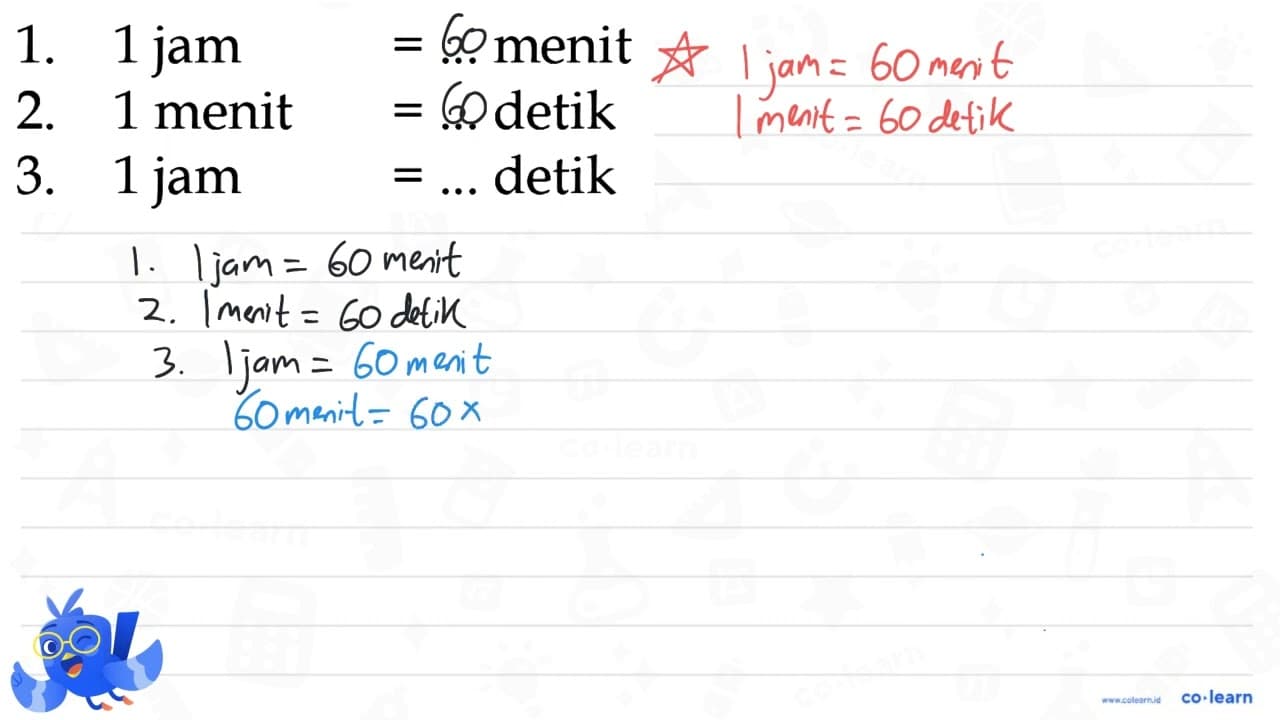 1. 1 jam = 60 menit
2. 1 menit = 60 detik
3. 1 jam = ... detik
☆ 1 jam = 60 menit
1 menit = 60 detik
1. 1 jam = 60 menit
2. 1 menit = 60 detik
3. 1 jam = 60 menit
60 menit = 60 x
www.colearn.id co·learn